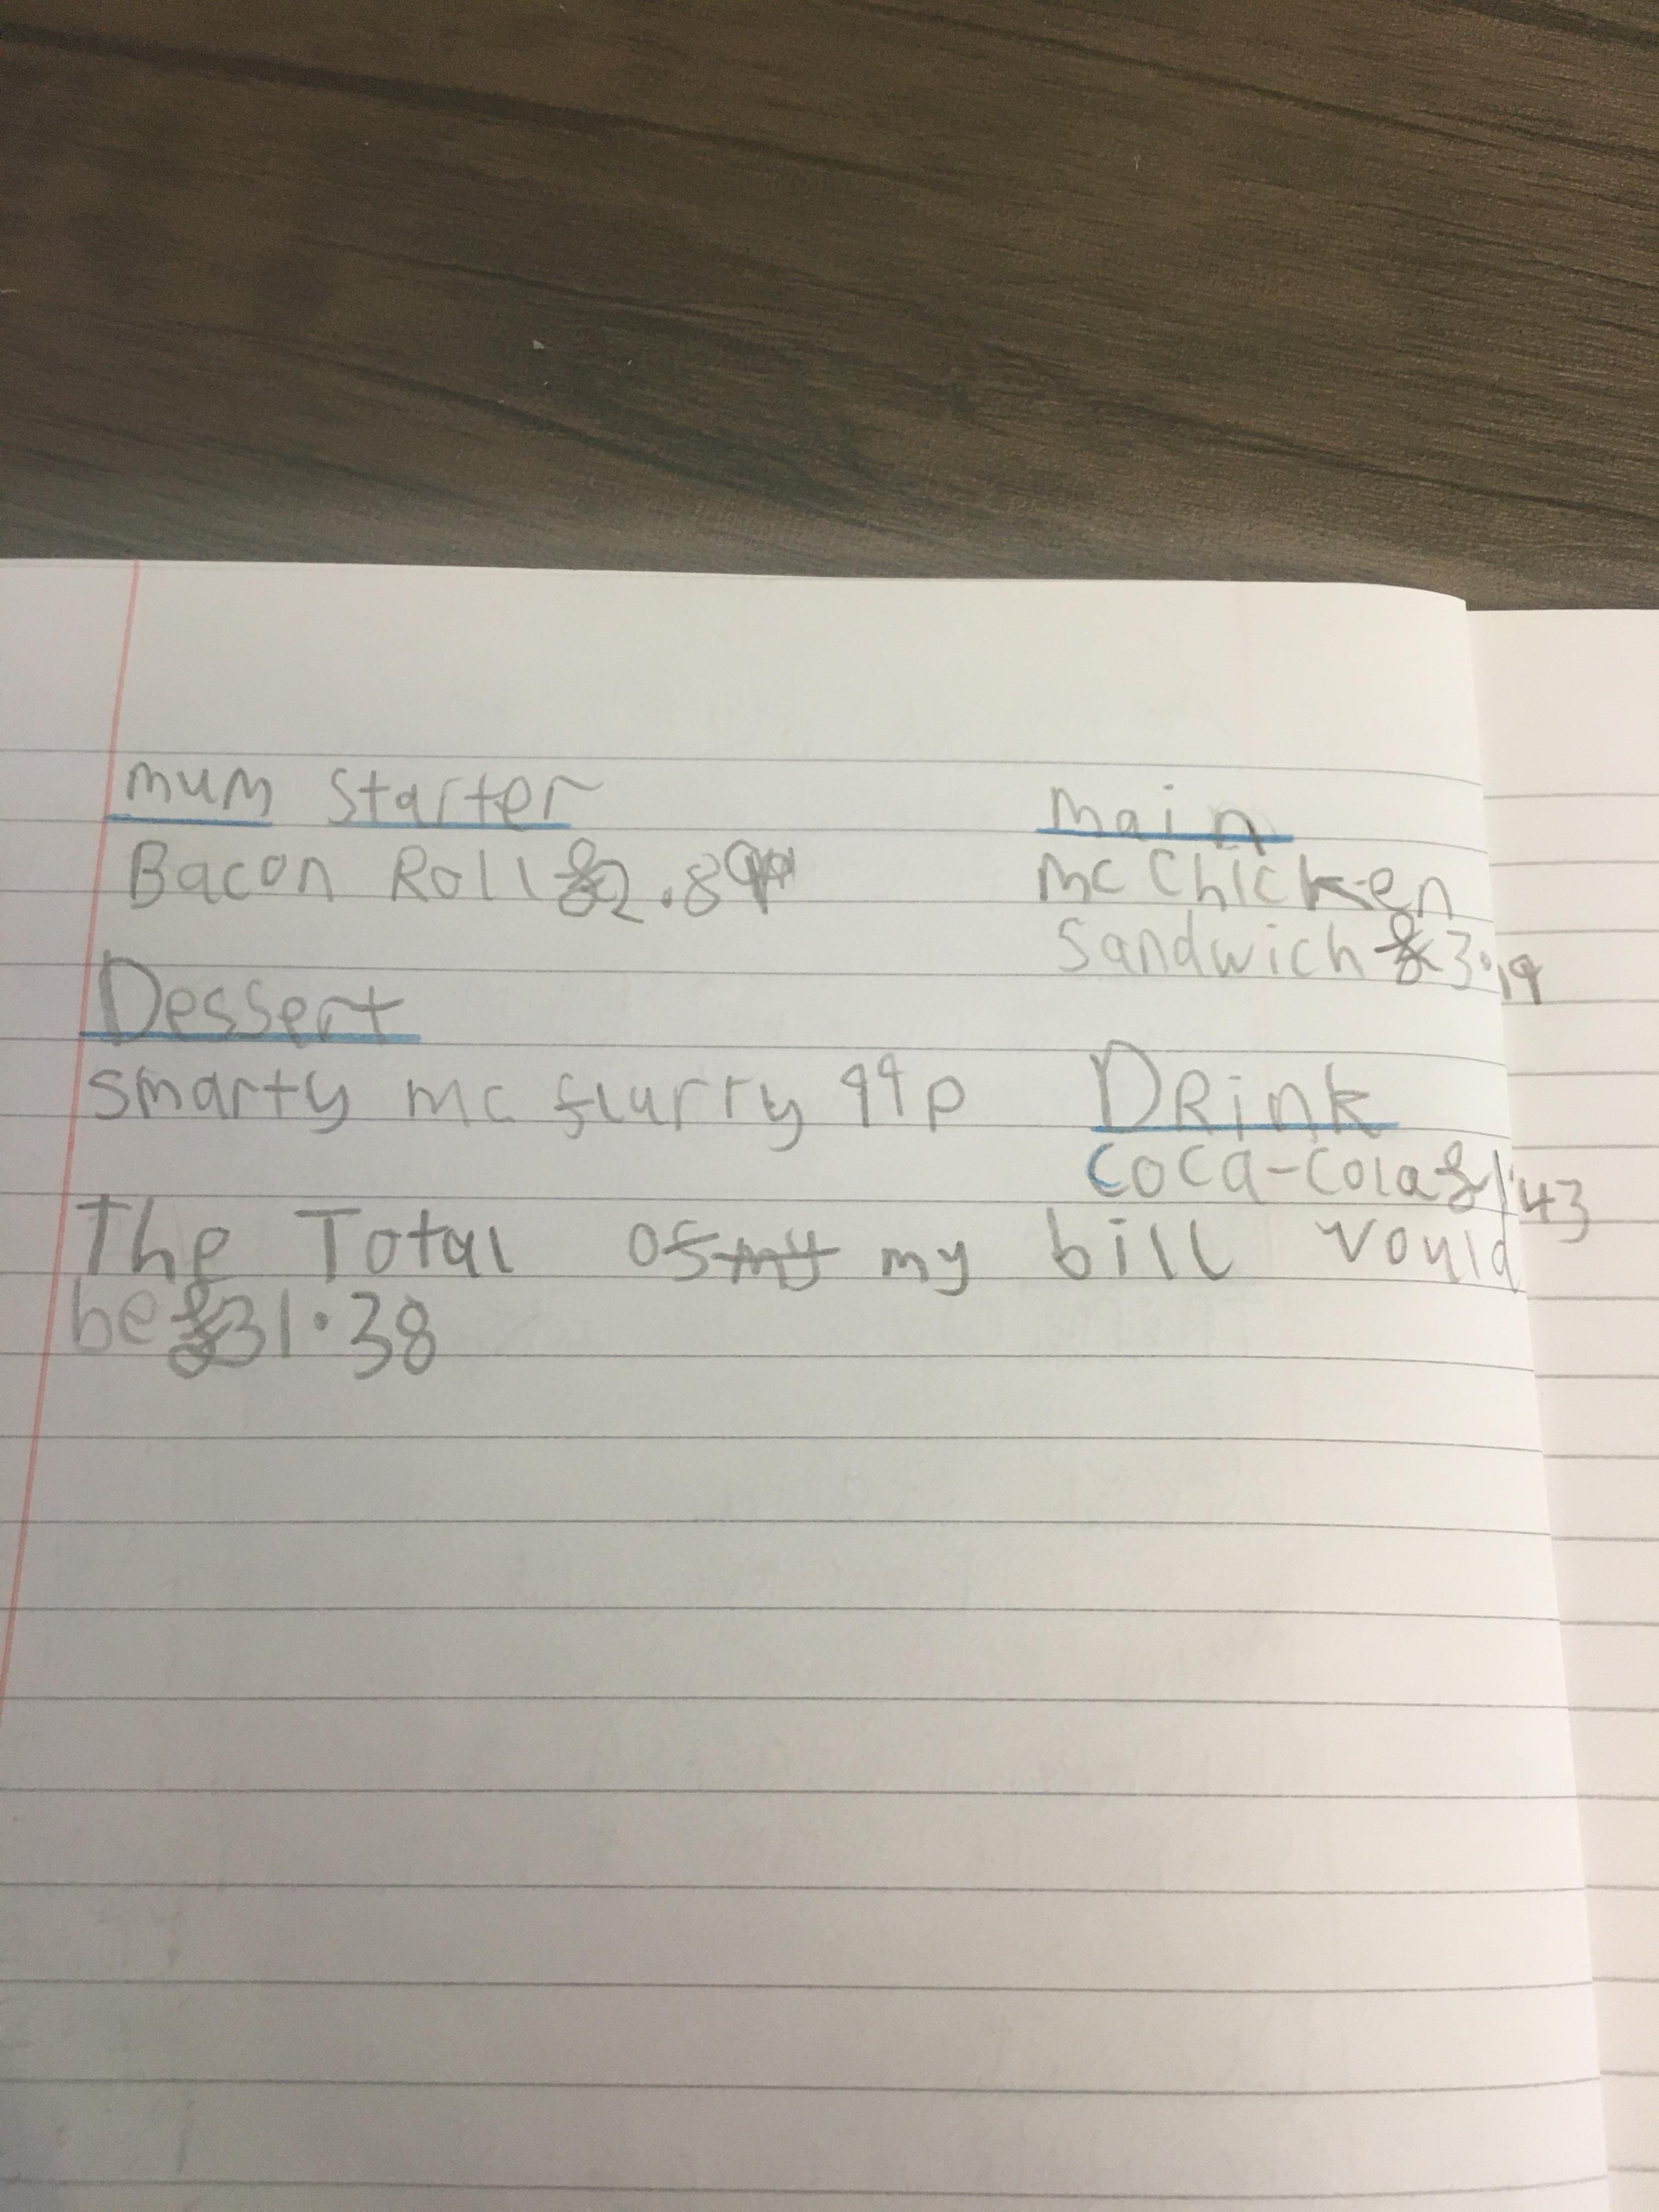 mum Starter
Bacon Roll £2.89
Main
Mc Chicken
Sandwich £3.19
Dessert
smarty mc flurry 99p
DRink
Coca-Cola £1.43
The Total of my my bill vould
be £31.38